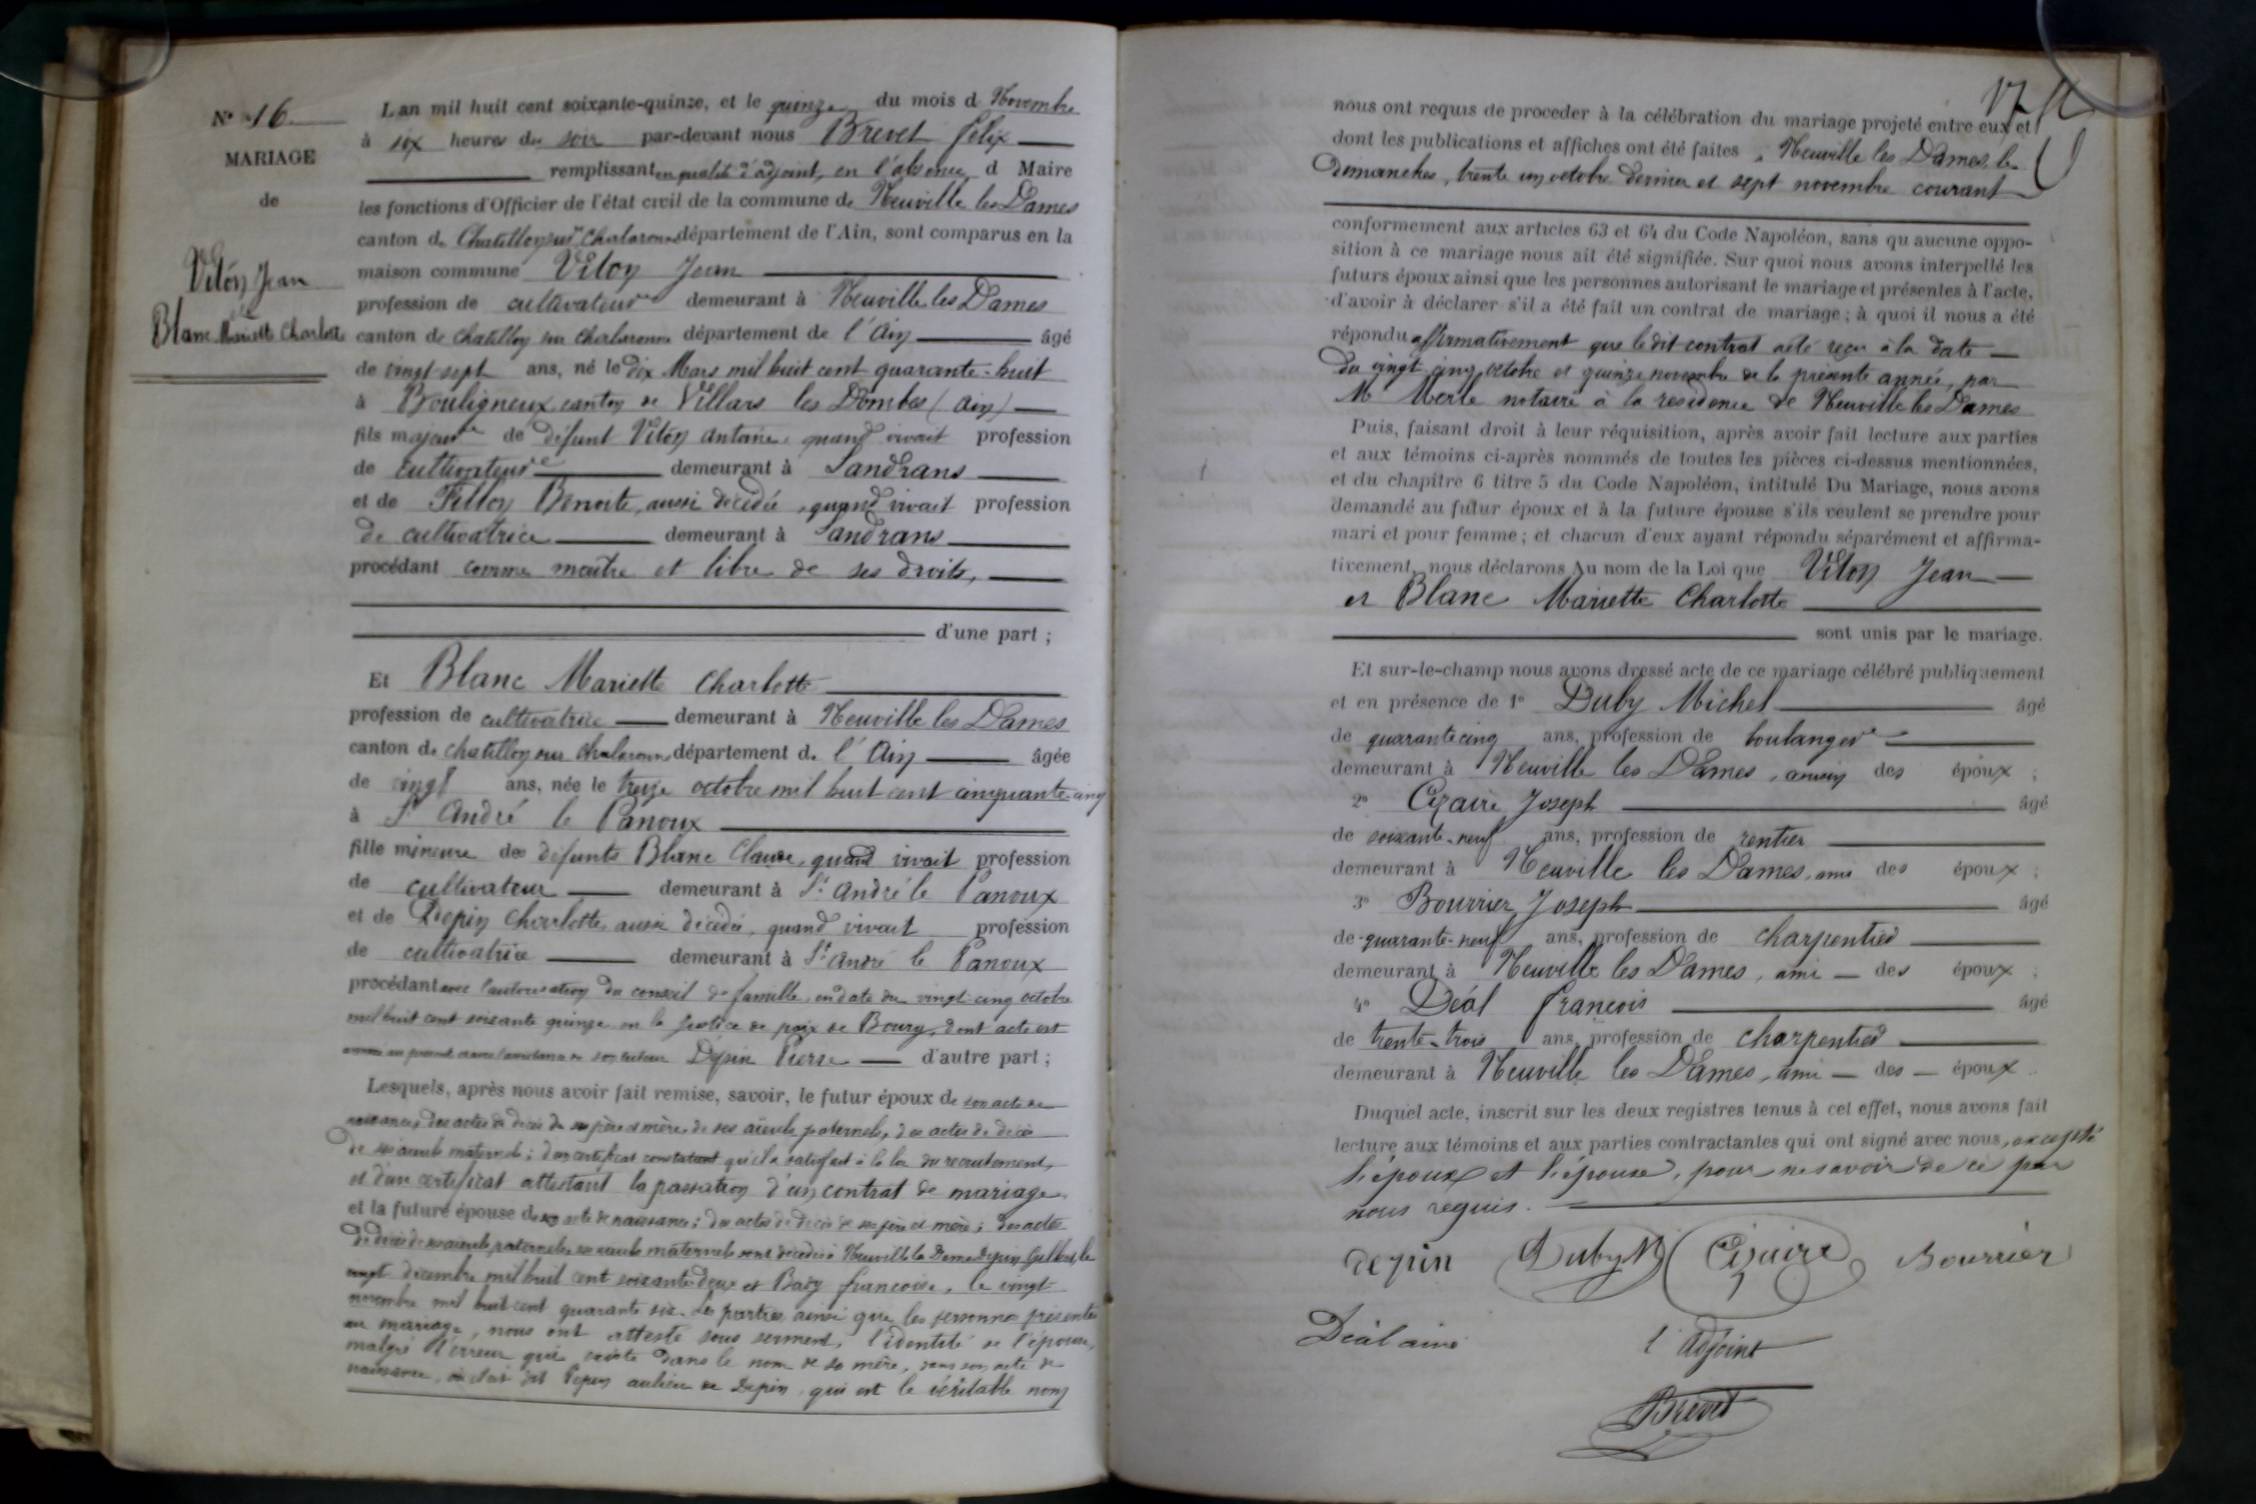 N° 16
MARIAGE
de
Vitoz Jean
et
Blanc Mariette Charlotte
L'an mil huit cent soixante-quinze, et le quinze du mois d Novembre
à six heures du soir par-devant nous Brevet félix
remplissant en qualité d'adjoint, en l'absence d Maire
les fonctions d'Officier de l'état civil de la commune de Neuville les Dames
canton de Chatillon sur Chalaronne département de l'Ain, sont comparus en la
maison commune Vitoz Jean
profession de cultivateur demeurant à Neuville les Dames
canton de chatillon sur chalaronne département de l'Ain âgé
de vingt-sept ans, né le dix Mars mil huit cent quarante-huit
à Bouligneux canton de Villars les Dombes (ain)
fils majeur de défunt Vitoz antoine, quand vivait profession
de cultivateur demeurant à Sandrans
et de Benoite, aussi décédée, quand vivait profession
de cultivatrice demeurant à Sandrans
procédant comme maitre et libre de ses droits,
d'une part ;
Et Blanc Mariette Charlotte
profession de cultivatrice demeurant à Neuville les Dames
canton de chatillon sur chalaronne département de l'Ain âgée
de vingt ans, née le treize octobre mil huit cent cinquante-cinq
à St André le Panoux
fille mineure des défunts Blanc Claude, quand vivait profession
de cultivateur demeurant à St André le Panoux
et de Depin Charlotte, aussi décédée, quand vivait profession
de cultivatrice demeurant à St André le Panoux
procédant avec l'autorisation du conseil de famille, en date du vingt-cinq octobre
mil huit cent soixante quinze en la Justice de paix de Bourg, dont acte est
de son tuteur Dépin Pierre d'autre part ;
Lesquels, après nous avoir fait remise, savoir, le futur époux de son acte de
naissance, des actes de décès de ses père et mère, de ses aïeuls paternels, des actes de décès
de ses aieuls maternels ; d'un certificat constatant qu'il a satisfait à la loi du recrutement,
et d'un certificat attestant la passation d'un contrat de mariage,
et la future épouse de son acte de naissance ; des actes de décès de ses père et mère ; des actes
de décès de ses aieuls paternels, ses aieuls maternels sont décédés à Neuville les Dames Depin le
vingt décembre mil huit cent soixante deux et françoise, le vingt
novembre mil huit cent quarante six. Les parties ainsi que les personnes présentes
au mariage, nous ont attesté sous serment, l'identité de l'épouse,
malgré l'erreur qui existe dans le nom de sa mère, dans son acte de
naissance, où était dit Pepin au lieu de Depin, qui est le véritable nom
17
nous ont requis de procéder à la célébration du mariage projeté entre eux et
dont les publications et affiches ont été faites à Neuville les Dames, les
dimanches, trente un octobre dernier et sept novembre courant
conformément aux articles 63 et 64 du Code Napoléon, sans qu'aucune oppo-
sition à ce mariage nous ait été signifiée. Sur quoi nous avons interpellé les
futurs époux ainsi que les personnes autorisant le mariage et présentes à l'acte,
d'avoir à déclarer s'il a été fait un contrat de mariage ; à quoi il nous a été
répondu affirmativement que le dit contrat a été reçu à la date
du vingt cinq octobre et quinze novembre de la présente année, par
Me Merle notaire à la résidence de Neuville les Dames
Puis, faisant droit à leur réquisition, après avoir fait lecture aux parties
et aux témoins ci-après nommés de toutes les pièces ci-dessus mentionnées,
et du chapitre 6 titre 5 du Code Napoléon, intitulé Du Mariage, nous avons
demandé au futur époux et à la future épouse s'ils veulent se prendre pour
mari et pour femme ; et chacun d'eux ayant répondu séparément et affirma-
tivement, nous déclarons Au nom de la Loi que Vitoz Jean
et Blanc Mariette Charlotte
sont unis par le mariage.
Et sur-le-champ nous avons dressé acte de ce mariage célébré publiquement
et en présence de 1° Duby Michel âgé
de quarante cinq ans, profession de boulanger
demeurant à Neuville les Dames, des époux ;
2° Cizaire Joseph âgé
de soixante-neuf ans, profession de rentier
demeurant à Neuville les Dames, ami des époux ;
3° Bourrier Joseph âgé
de quarante-neuf ans, profession de charpentier
demeurant à Neuville les Dames, ami des époux ;
4° Déal françois âgé
de trente-trois ans, profession de charpentier
demeurant à Neuville les Dames, ami des époux
Duquel acte, inscrit sur les deux registres tenus à cet effet, nous avons fait
lecture aux témoins et aux parties contractantes qui ont signé avec nous, excepté
l'époux et l'épouse, pour ne savoir de ce par
nous requis.
depin Duby M Cizaire Bourrier
Déal ainé l'adjoint
Brevet